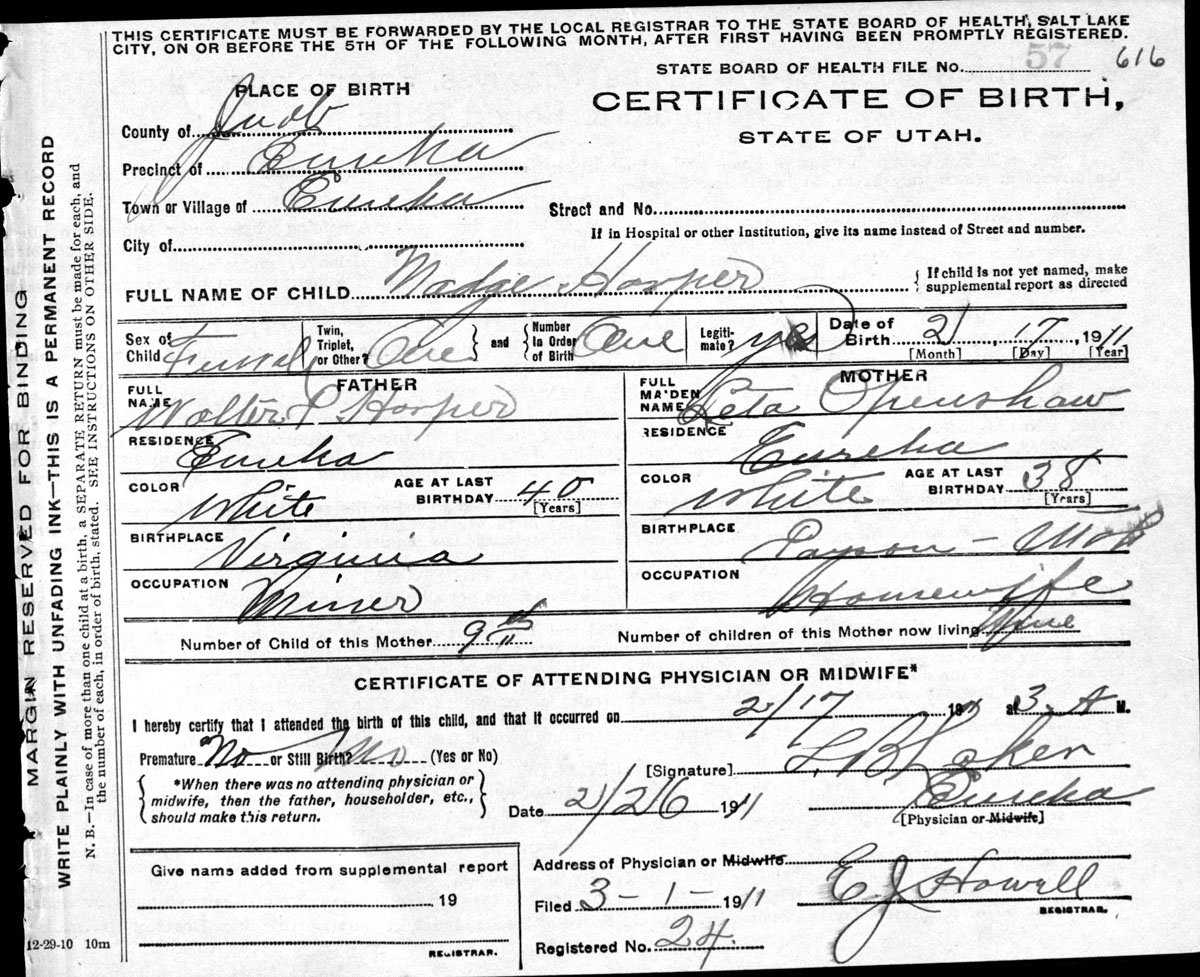 THIS CERTIFICATE MUST BE FORWARDED BY THE LOCAL REGISTRAR TO THE STATE BOARD OF HEALTH, SALT LAKE
CITY, ON OR BEFORE THE 5TH OF THE FOLLOWING MONTH, AFTER FIRST HAVING BEEN PROMPTLY REGISTERED.
STATE BOARD OF HEALTH FILE No. 57 616
PLACE OF BIRTH
CERTIFICATE OF BIRTH,
STATE OF UTAH.
County of Juab
Precinct of Eureka
Town or Village of Eureka
Street and No.
City of
If in Hospital or other Institution, give its name instead of Street and number.
FULL NAME OF CHILD Madge Harper
{ If child is not yet named, make
supplemental report as directed
Sex of Child Femal
Twin, Triplet, or Other? One } and { Number In Order of Birth One
Legiti-mate? yes
Date of Birth 2 [Month], 17 [Day], 1911 [Year]
FATHER
FULL NAME Walter Harper
MOTHER
FULL MAIDEN NAME Leta Openshaw
RESIDENCE Eureka
RESIDENCE Eureka
COLOR White AGE AT LAST BIRTHDAY 40 [Years]
COLOR White AGE AT LAST BIRTHDAY 38 [Years]
BIRTHPLACE Virginia
BIRTHPLACE Payson - Utah
OCCUPATION Miner
OCCUPATION Housewife
Number of Child of this Mother 9th Number of children of this Mother now living Nine
CERTIFICATE OF ATTENDING PHYSICIAN OR MIDWIFE*
I hereby certify that I attended the birth of this child, and that it occurred on 2/17 191 at 3 A M.
Premature No or Still Birth? No (Yes or No)
{ *When there was no attending physician or
midwife, then the father, householder, etc.,
should make this return. }
[Signature]
Eureka
Date 2/26 1911
[Physician or Midwife]
Give name added from supplemental report
19
REGISTRAR.
Address of Physician or Midwife
Filed 3-1- 1911
E J Howell
REGISTRAR.
Registered No. 24.
12-29-10 10m
MARGIN RESERVED FOR BINDING
WRITE PLAINLY WITH UNFADING INK—THIS IS A PERMANENT RECORD
N. B.—In case of more than one child at a birth, a SEPARATE RETURN must be made for each, and
the number of each, in order of birth, stated. SEE INSTRUCTIONS ON OTHER SIDE.